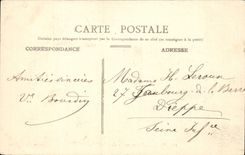 CARTE POSTALE
CORRESPONDANCE
ADRESSE
Amitiés sincères
Vve Bourdin
Madame H. Leroux
27 Faubourg de la Barre
Dieppe
Seine Infre